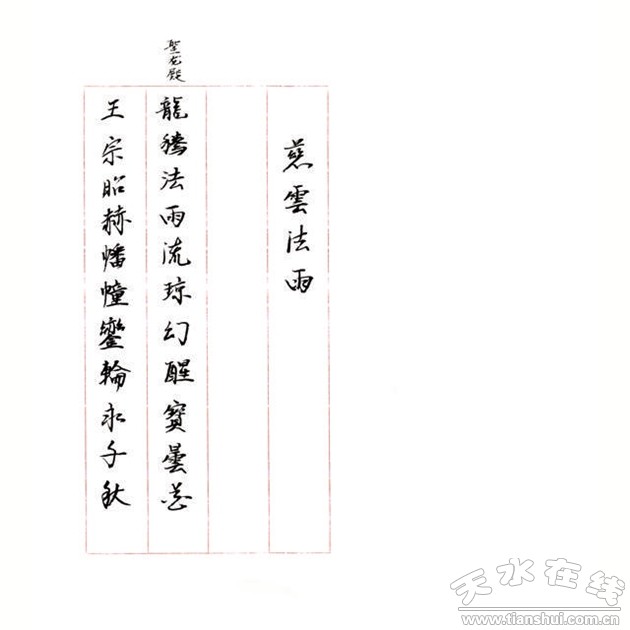 慈雲法雨
聖君殿
龍騰法雨流琼幻醒寶曇花
王宗昭赫幡幢鑾輪永千秋
天水在线
www.tianshui.com.cn